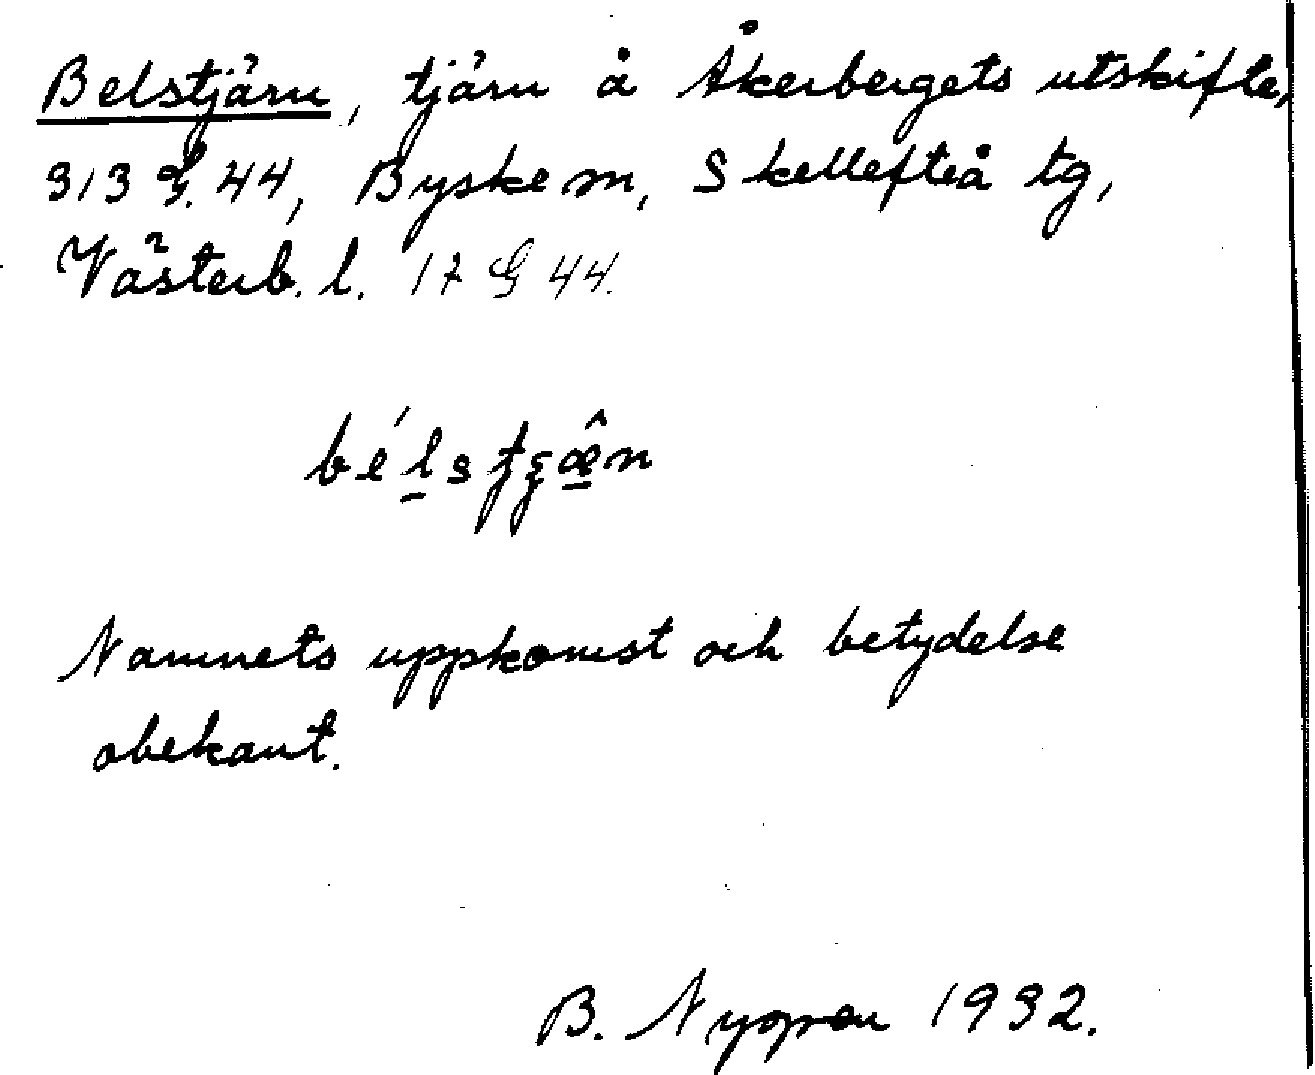 Belstjärn, tjärn å Åkerbergets utskifte,
313 G. 44, Byske sn, Skellefteå tg,
Västerb. l. 17 G 44.
Namnets uppkomst och betydelse
obekant.
B. Nyman 1932.